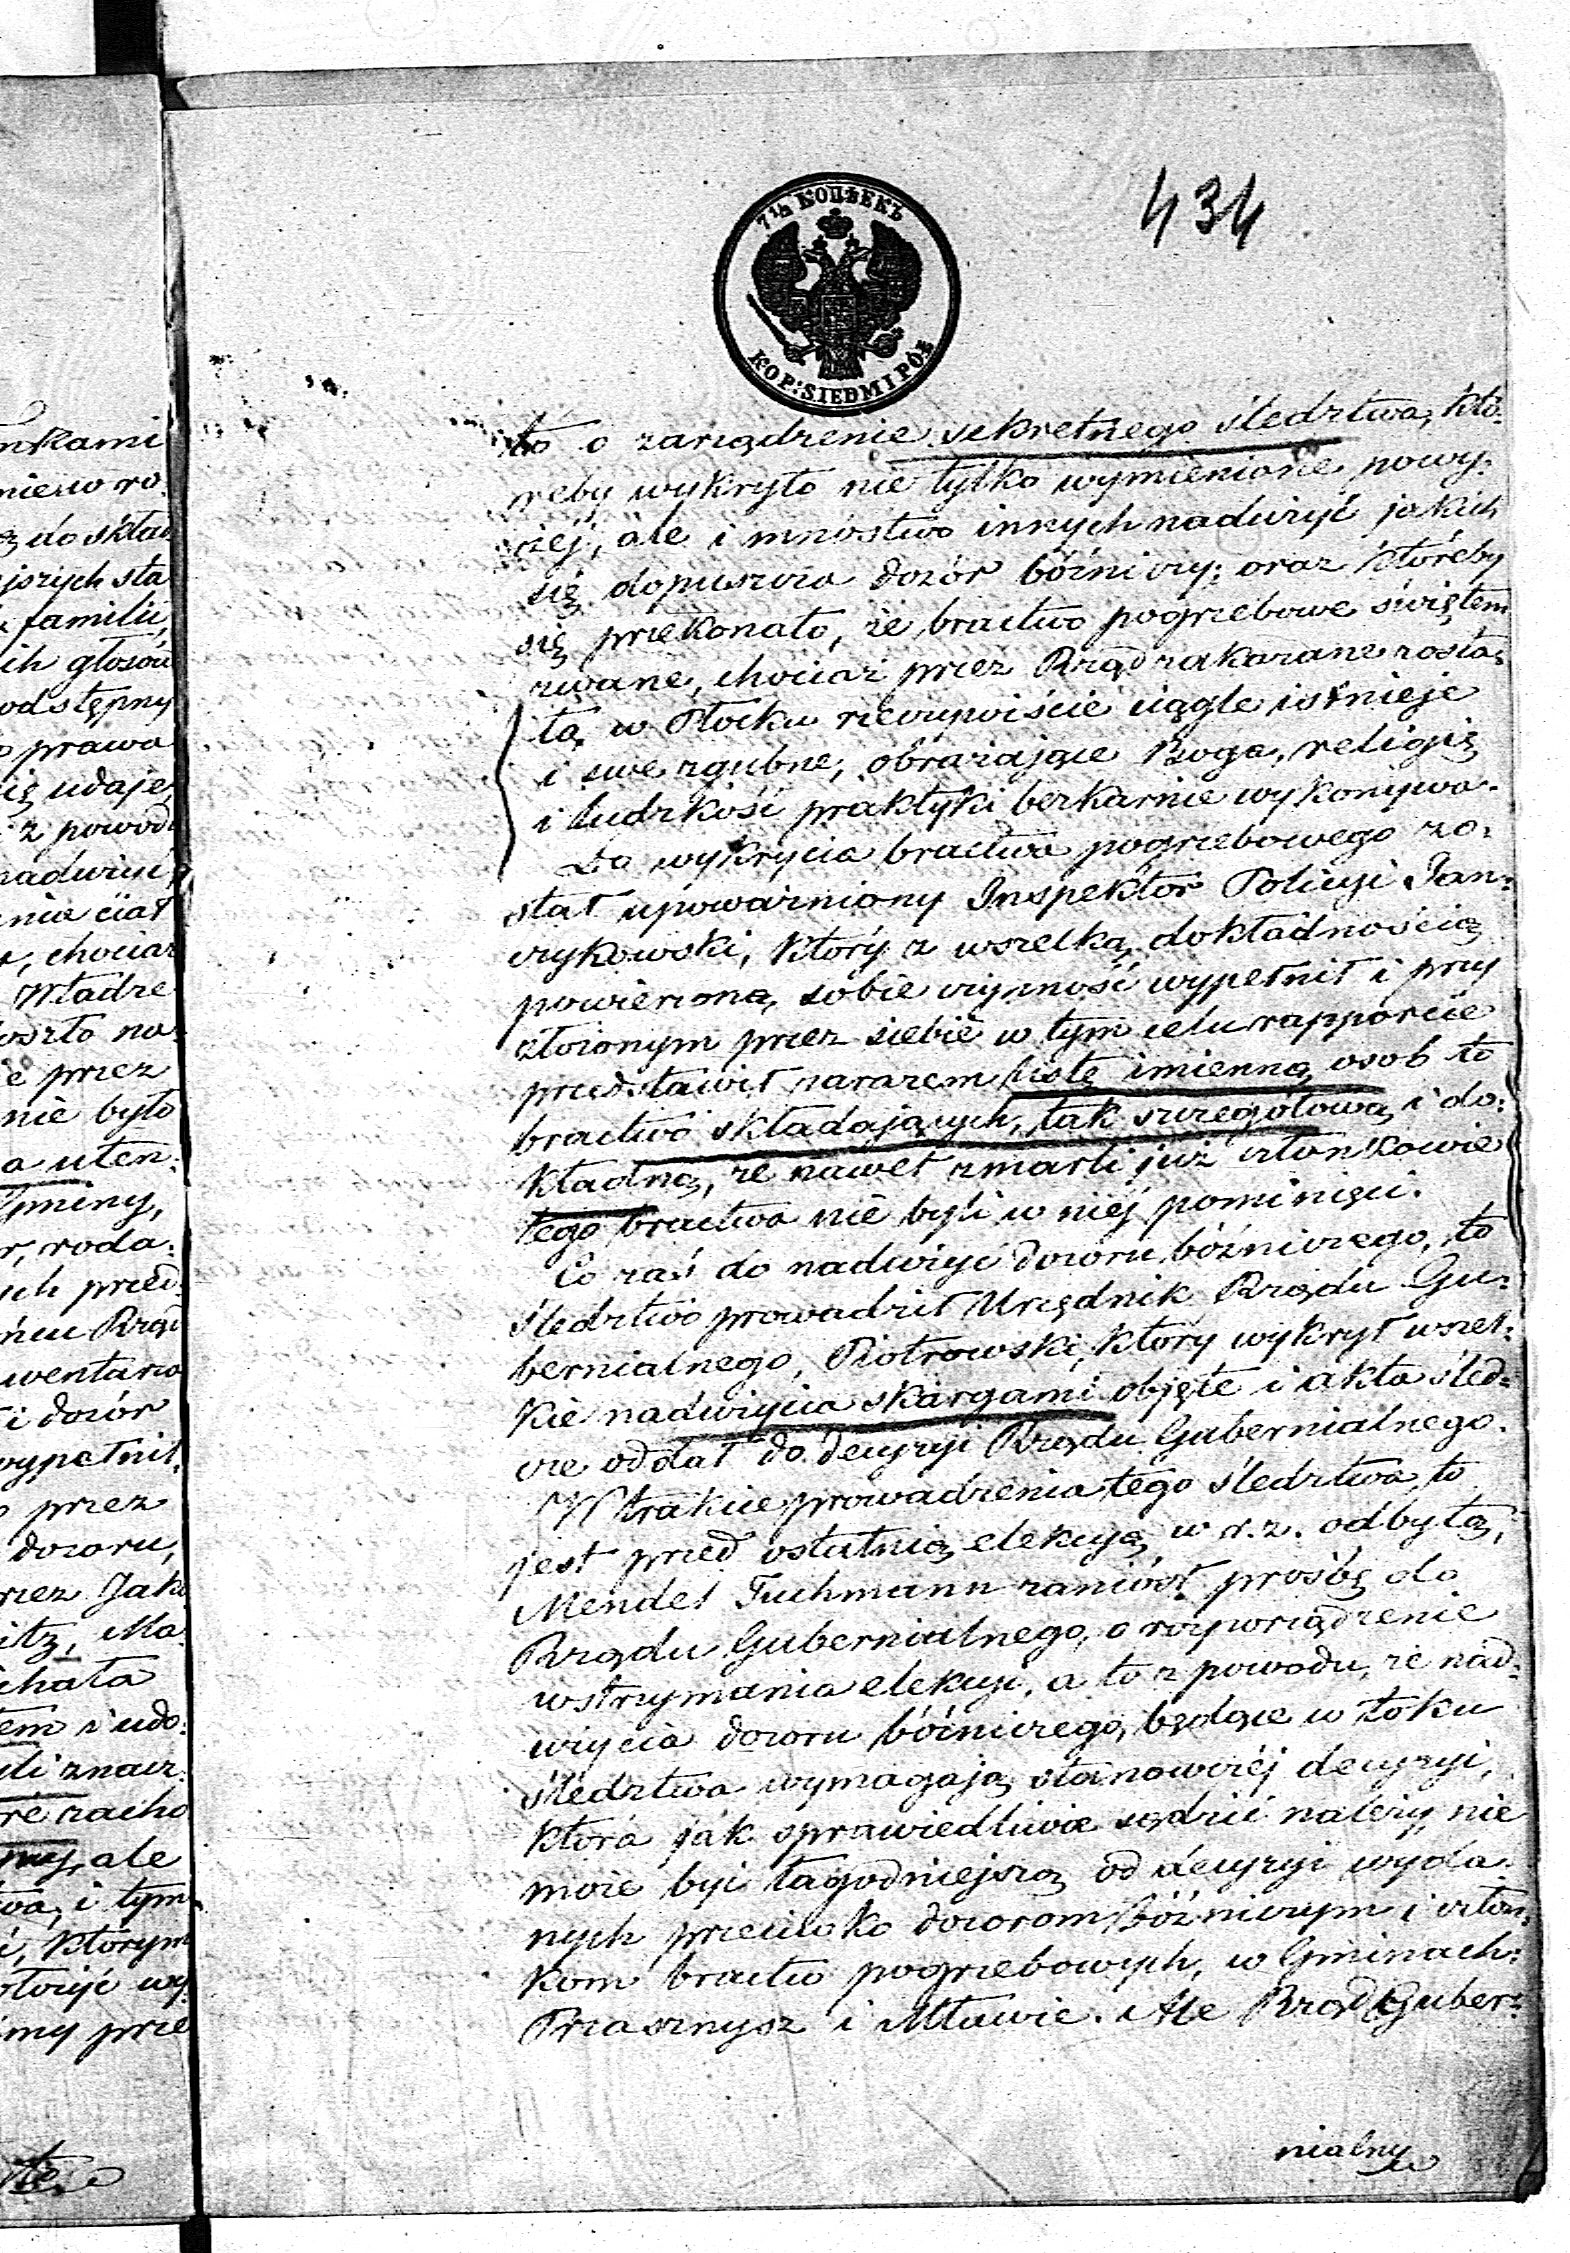 434
7½ КОПѢЕКЪ
KOP: SIEDMIPÓŁ
to o zarządzenie sekretnego śledztwa, któ-
reby wykryło nie tylko wymienione powy-
żéj, ale i mnóstwo innych nadużyć jakich
się dopuszcza dozór bóżniczy; oraz któreby
się przekonało, że bractwo pogrzebowe świętem
zwane, chociaż przez Rząd zakazane zosta-
ło, w Płocku rzeczywiście ciągle istnieje
i swe zgubne, obrażające Boga, religię
i ludzkość praktyki bezkarnie wykonywa.
Do wykrycia bractwa pogrzebowego zo-
stał upoważniony Inspektor Policyi Jan-
czykowski, który z wszelką dokładnością
powierzoną sobie czynność wypełnił i przy
złożonym przez siebie w tym celu rapporcie
przedstawił zarazem listę imienną osob to
bractwo składających, tak szczegółową i do-
kładną, że nawet zmarli już członkowie
tego bractwa nie byli w niéj pominięci.
Co zaś do nadużyć dozoru bóżniczego, to
śledztwo prowadził Urzędnik Rządu Gu-
bernialnego, Piotrowski, który wykrył wszel-
kie nadużycia skargami objęte i akta śled-
cze oddał do decyzyi Rządu Gubernialnego.
W trakcie prowadzenia tego śledztwa, to
jest przed ostatnią elekcyą w r. z. odbytą,
Mendel Tuchmann zaniósł prośbę do
Rządu Gubernialnego, o rozporządzenie
wstrzymania elekcyi, a to z powodu, że nad-
użycia dozoru bóżniczego, będące w toku
śledztwa wymagają stanowczéj decyzyi,
która jak sprawiedliwie sądzić należy, nie
może być łagodniejszą od decyzyi wyda-
nych przeciwko dozorom bóżniczym i człon-
kom bractw pogrzebowych, w Gminach:
Przasznysz i Mławie. Ale Rząd Guber-
nialny